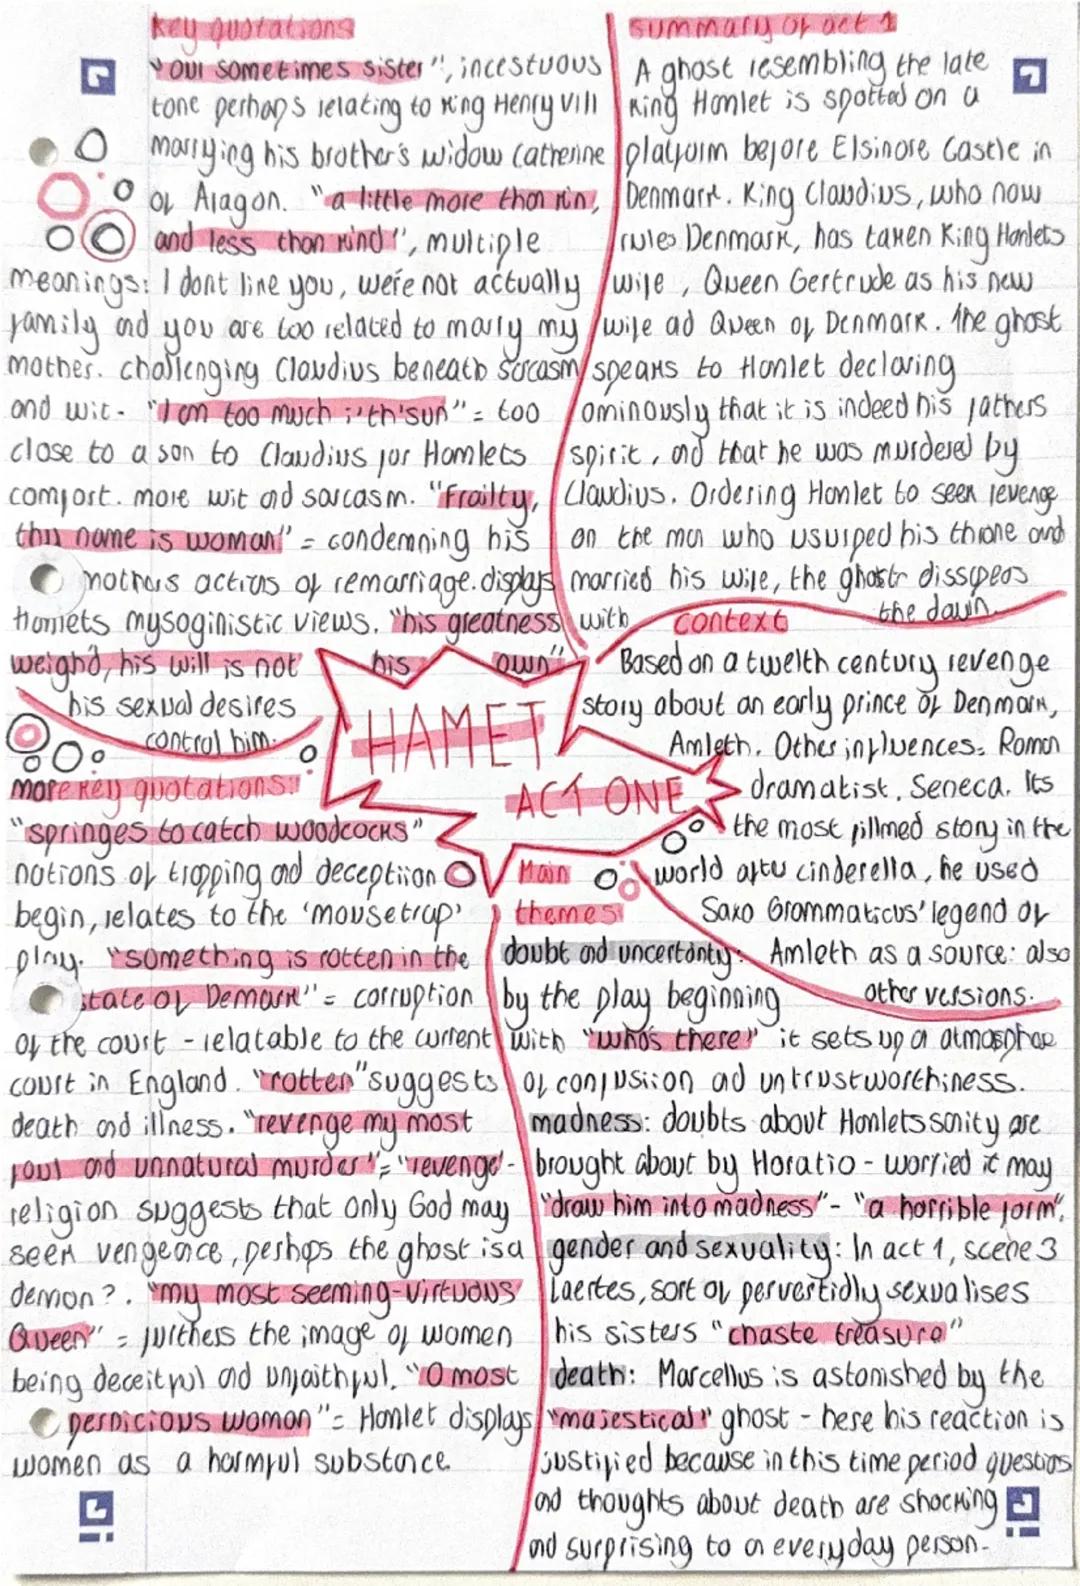 key quotations
"our sometimes sister", incestuous
tone perhaps relating to King Henry VIII
marrying his brother's widow Catherine
of Aragon. "a little more than kin,
and less than kind!", multiple
meanings: I dont like you, we're not actually
family and you are too related to marry my
mother. challenging Claudius beneath sarcasm
and wit. "I am too much i'th'sun" = too
close to a son to Claudius for Hamlets
comfort. more wit and sarcasm. "Frailty,
thy name is woman!" = condemning his
mothers actions of remarriage. displays
Hamlets mysoginistic views. "his greatness
weigh'd, his will is not his own"
his sexual desires
control him.
more key quotations:
"springes to catch woodcocks"
notions of trapping and deception
begin, relates to the 'mousetrap'
play. "something is rotten in the
state of Demark" = corruption
of the court - relatable to the current
court in England. "rotten" suggests
death and illness. "revenge my most
foul and unnatural murder" = "revenge"-
religion suggests that only God may
seek vengence, perhaps the ghost is a
demon?. "my most seeming-virtuous
Queen" = furthers the image of women
being deceitful and unfaithful. "O most
pernicious woman" = Hamlet displays
women as a harmful substance
HAMET
ACT ONE
summary of act 1
A ghost resembling the late
King Hamlet is spotted on a
platform before Elsinore Castle in
Denmark. King Claudius, who now
rules Denmark, has taken King Hamlets
wife, Queen Gertrude as his new
wife ad Queen of Denmark. The ghost
speaks to Hamlet declaring
ominously that it is indeed his fathers
spirit, and that he was murdered by
Claudius. Ordering Hamlet to seek revenge
on the man who usurped his throne and
married his wife, the ghost dissapears
with the dawn.
context
Based on a twelth century revenge
story about an early prince of Denmark,
Amleth. Other influences: Roman
dramatist, Seneca. Its
the most fillmed story in the
world after cinderella, he used
Saxo Grammaticus' legend of
Amleth as a source: also
other versions.
Main
themes
doubt and uncertanty:
by the play beginning
with "who's there?" it sets up a atmosphae
of confusiion and untrustworthiness.
madness: doubts about Hamlets sanity are
brought about by Horatio - worried it may
"draw him into madness" - "a horrible form".
gender and sexuality: In act 1, scene 3
Laertes, sort of pervertidly sexualises
his sisters "chaste treasure"
death: Marcellus is astonished by the
"majestical" ghost - here his reaction is
justified because in this time period questions
and thoughts about death are shocking
and surprising to an everyday person.